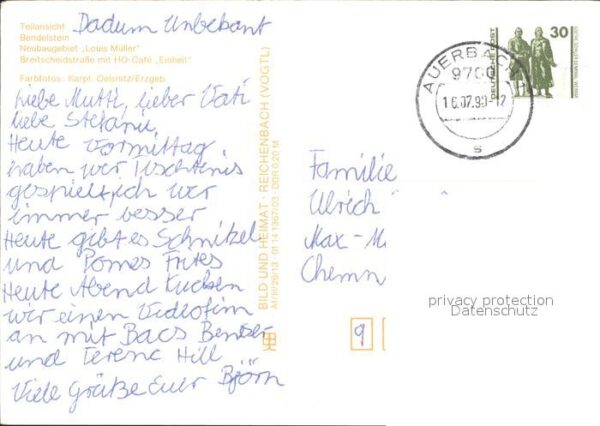 Teilansicht
Bendelstein
Neubaugebiet „Louis Müller"
Breitscheidstraße mit HO-Café „Einheit"
Farbfotos: Karpf, Oelsnitz/Erzgeb
Dadum Unbekant
Liebe Mutti, lieber Vati
liebe Stefanie,
Heute Vormittag
haben wir Tischtenis
gespielt, ich wer
immer besser
Heute gibt es Schnitzel
und Pomes Frites
Heute Abend kuchen
wir einen Videofim
an mit Bacs Benser
und Terenc Hill
Viele Grüße Euer Björn
BILD UND HEIMAT · REICHENBACH (VOGTL)
A1/III/26/13 · 01 14 1367/03 · DDR 0,20 M
AUERBACH
9700
16.07.90-12
s
DEUTSCHE POST
30
Familie
Ulrich
Max-M
Chemn
9
privacy protection
Datenschutz